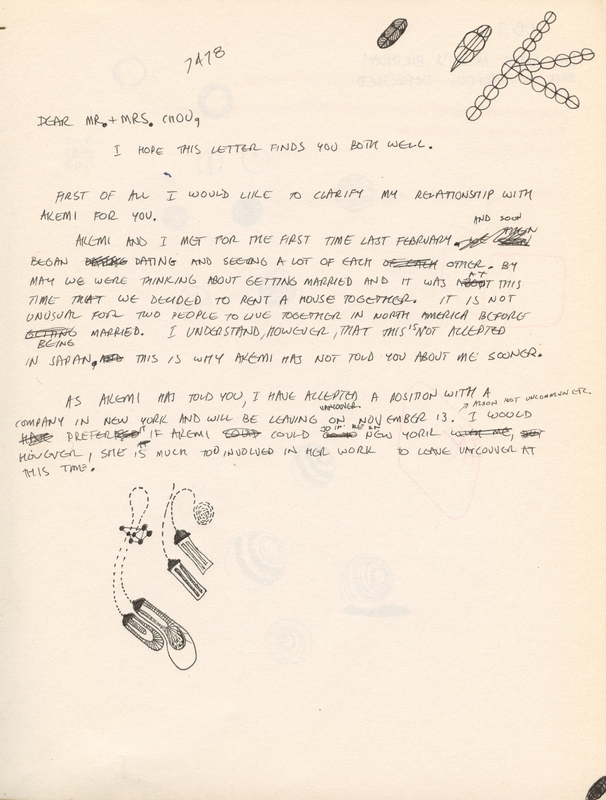 7478
DEAR MR. + MRS. CHOU,
I HOPE THIS LETTER FINDS YOU BOTH WELL.
FIRST OF ALL I WOULD LIKE TO CLARIFY MY RELATIONSHIP WITH
AKEMI FOR YOU.
AKEMI AND I MET FOR THE FIRST TIME LAST FEBRUARY. AND SOON
BEGAN DATING AND SEEING A LOT OF EACH OTHER. BY
MAY WE WERE THINKING ABOUT GETTING MARRIED AND IT WAS AT THIS
TIME THAT WE DECIDED TO RENT A HOUSE TOGETHER. IT IS NOT
UNUSUAL FOR TWO PEOPLE TO LIVE TOGETHER IN NORTH AMERICA BEFORE
BEING MARRIED. I UNDERSTAND, HOWEVER, THAT THIS IS NOT ACCEPTED
IN JAPAN, THIS IS WHY AKEMI HAS NOT TOLD YOU ABOUT ME SOONER.
AS AKEMI HAS TOLD YOU, I HAVE ACCEPTED A POSITION WITH A
COMPANY IN NEW YORK AND WILL BE LEAVING VANCOUVER ON NOVEMBER 13. I WOULD
PREFER IT IF AKEMI COULD JOIN ME IN NEW YORK,
HOWEVER, SHE IS MUCH TOO INVOLVED IN HER WORK TO LEAVE VANCOUVER AT
THIS TIME.